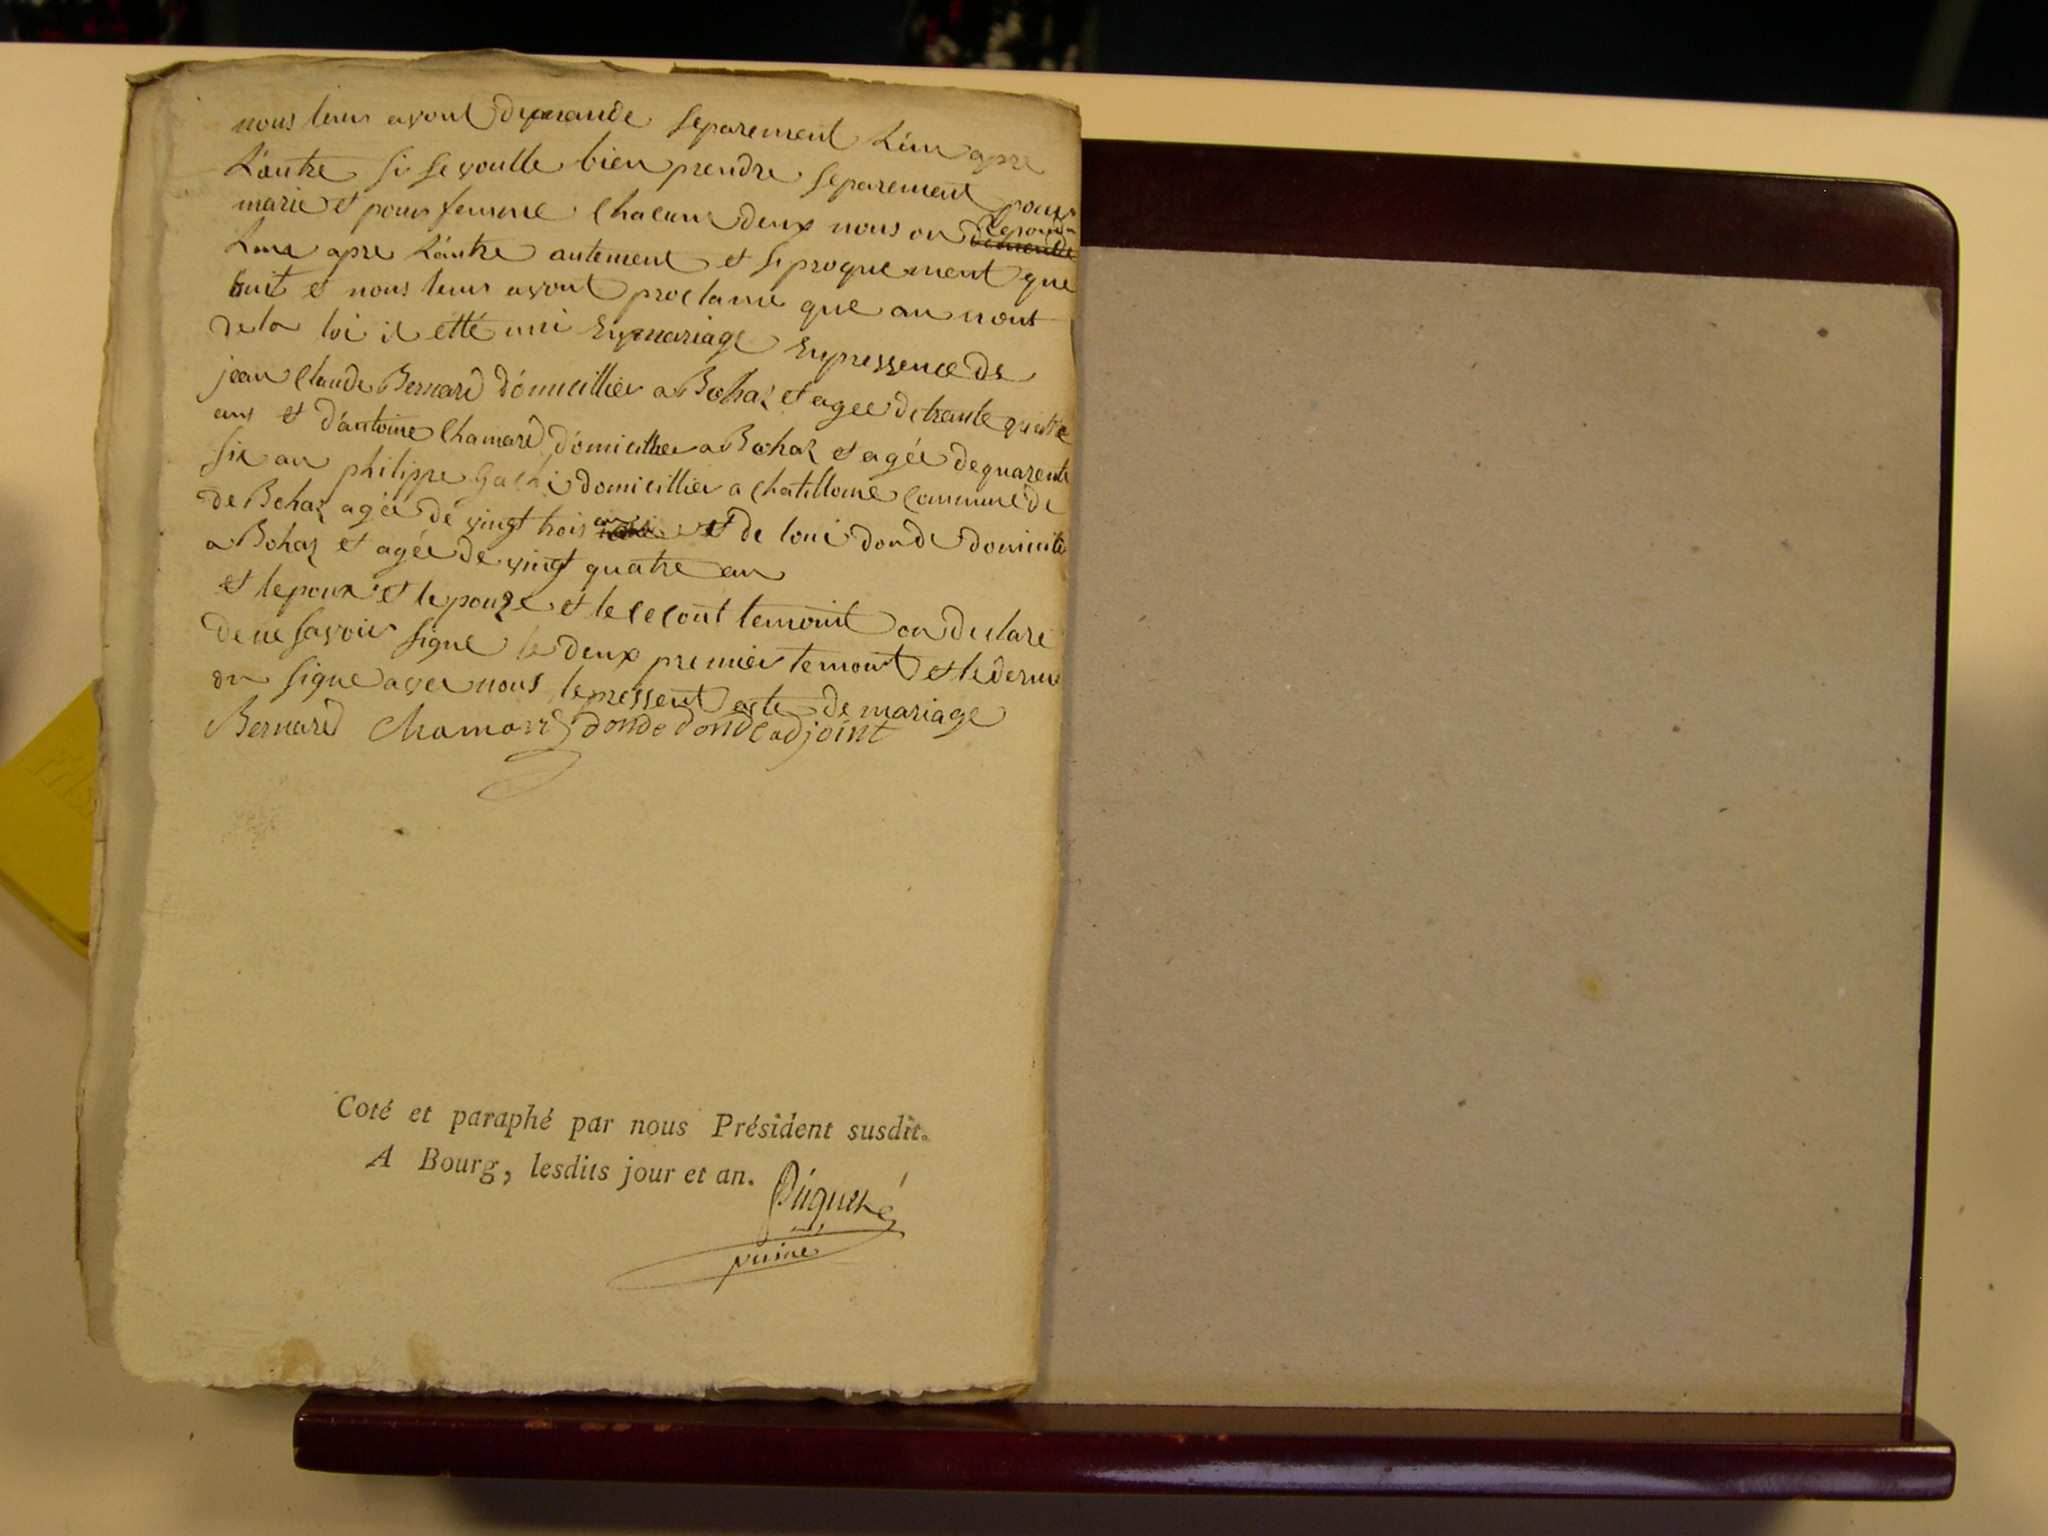 nous leur avont demande separement L'un apre
L'autre si se voulle bien prendre separement pour
marie et pour femme Chacun deux nous on repondu
L'une apre L'autre autement et siproquement que
huit et nous leur avont proclame que au nont
de la loi il étté uni En mariage En pressence de
jean Claude Bernard domicillier a Bohaz et agee de trante quatre
ans et d'antoine Chamard domicillier a Bohaz et agée de quarente
six an philippe domicillier a Chatillone Commune de
de Bohaz agée dé vingt trois an et de loui donde domicile
a Bohaz et agée de vingt quatre an
et lepoux et lepouze et le ce cont temoint on declare
de ne savoir signe le deux premier temont et le dernie
on signe avec nous le pressent acte de mariage
Bernard Chamard donde donde adjoint
Coté et paraphé par nous Président susdit.
A Bourg, lesdits jour et an.